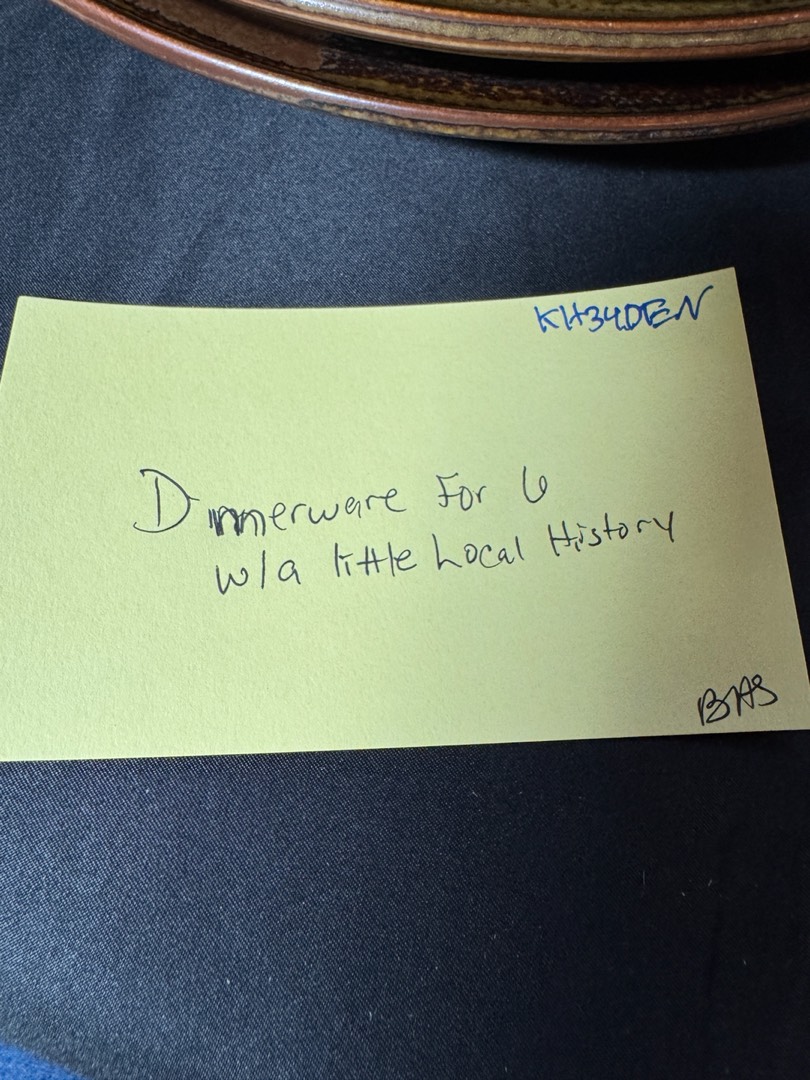 KH34DEN
Dinnerware For 6
w/a little Local History
BAS